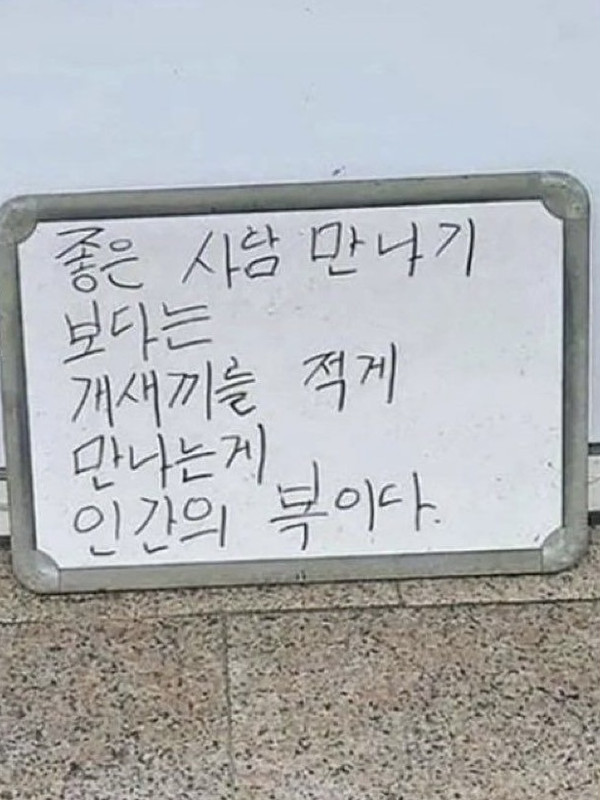 좋은 사람 만나기
보다는
개새끼를 적게
만나는게
인간의 복이다.